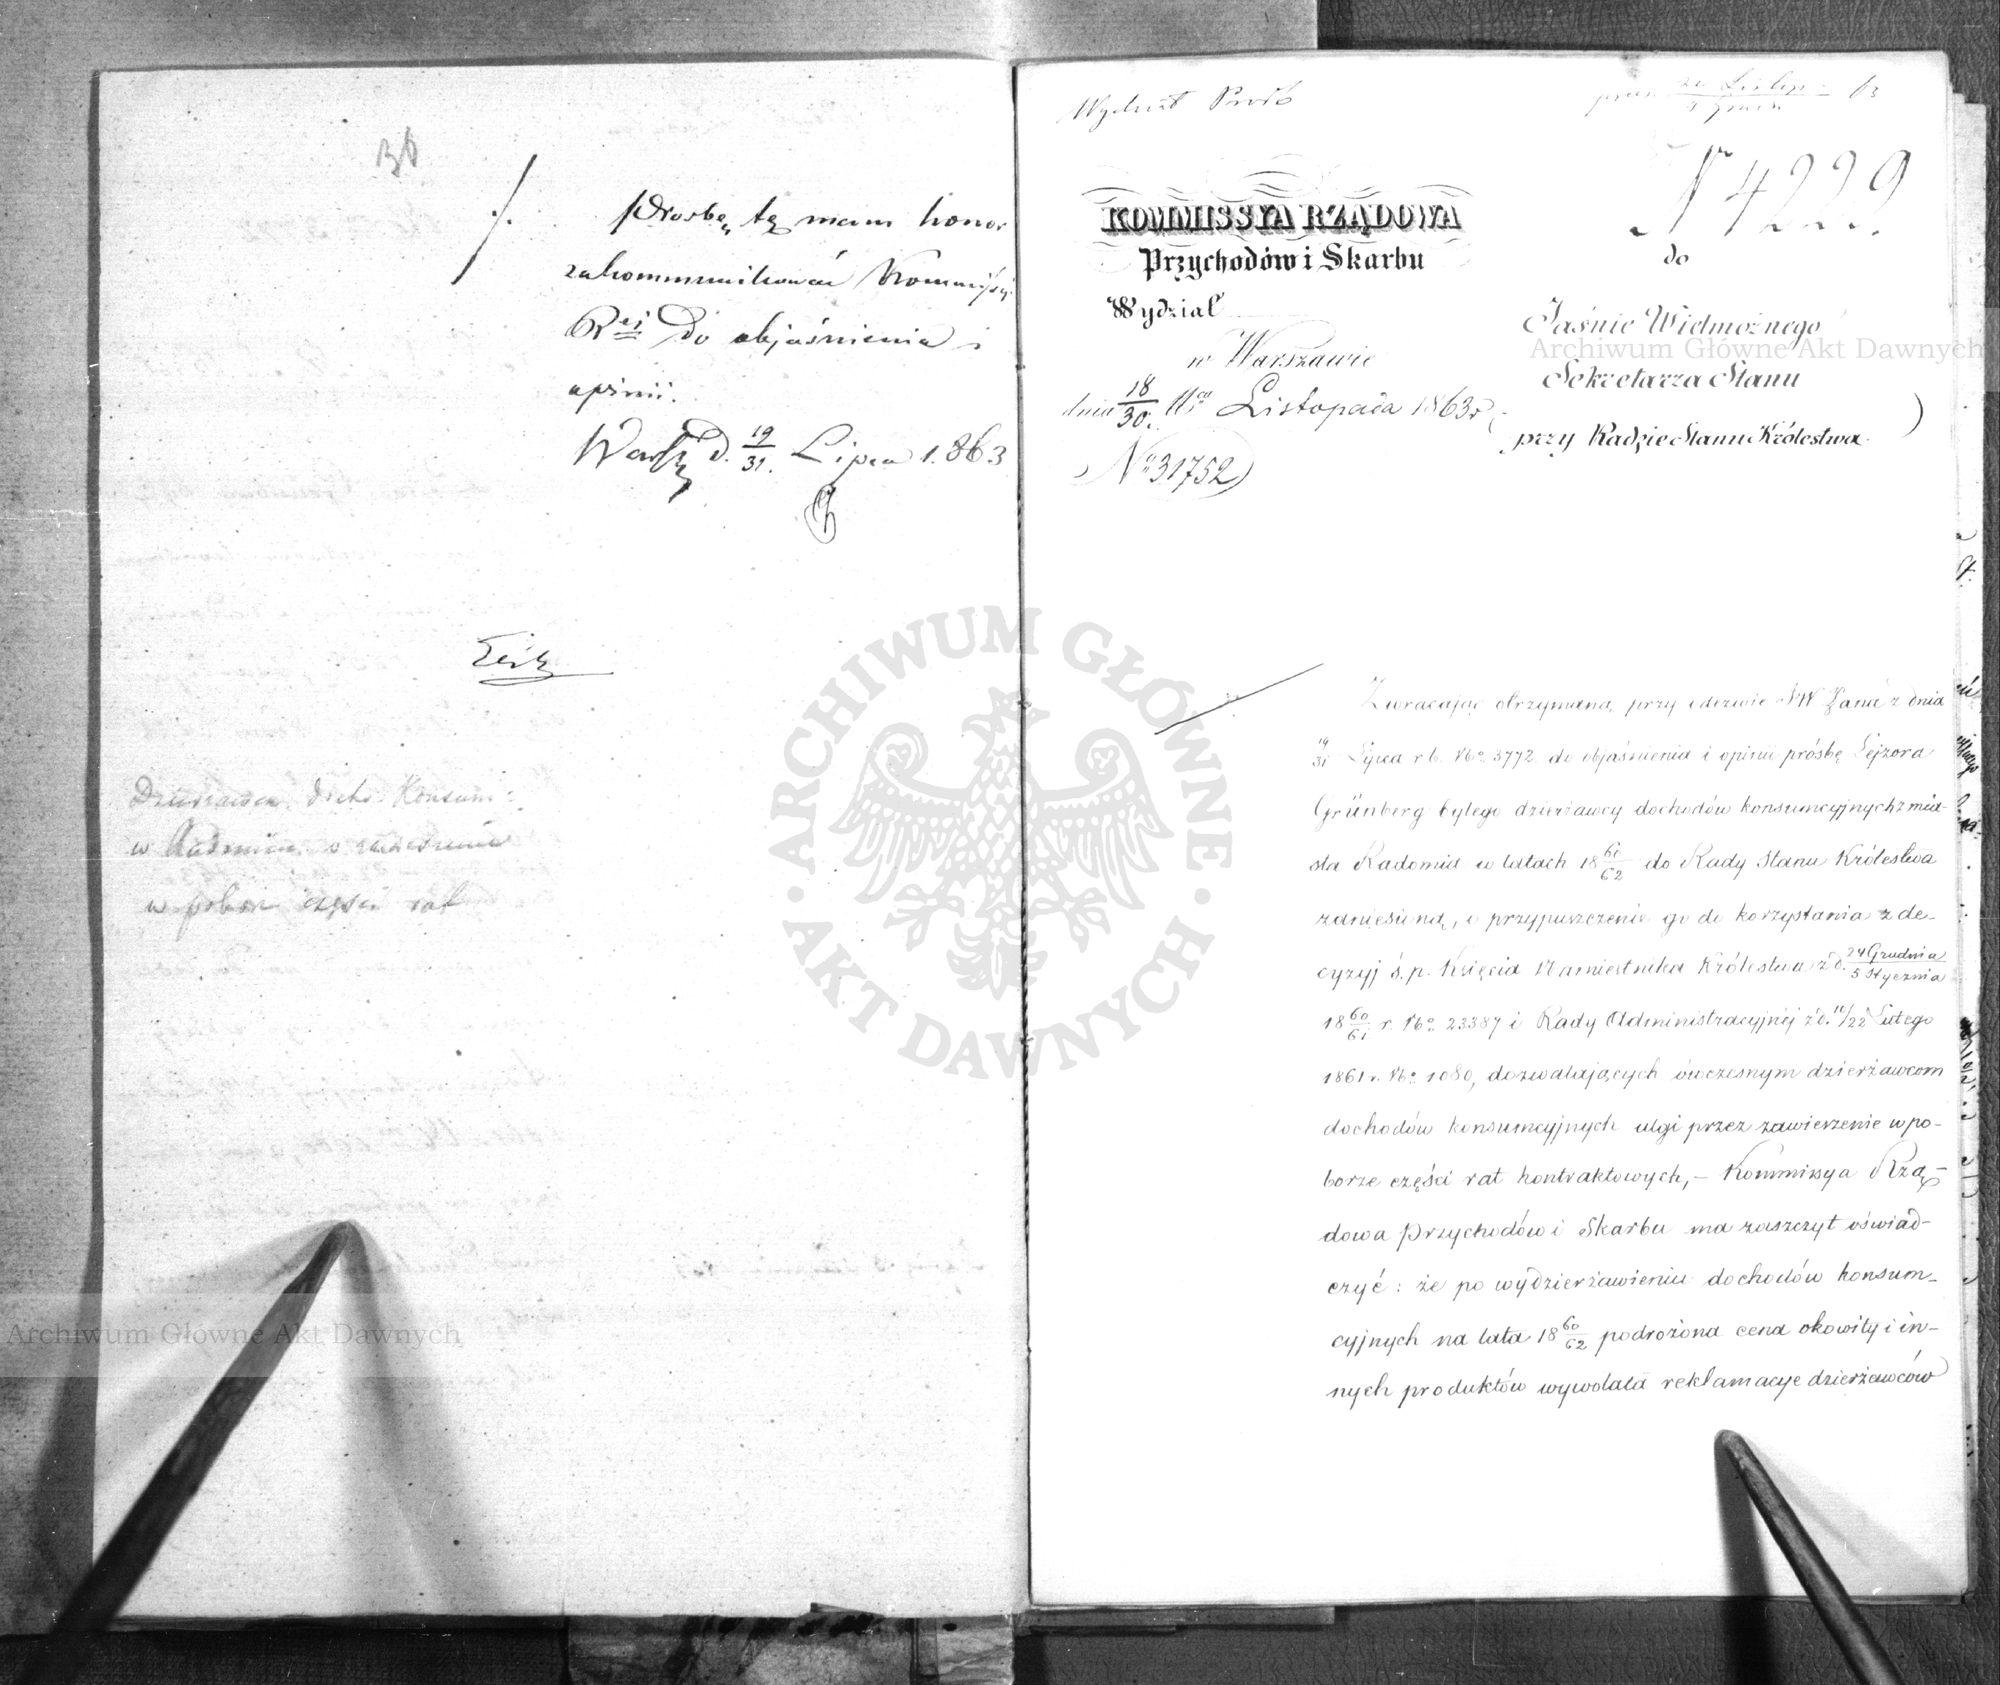 36
Prośbę tę mam honor
zakommunikować Kommissyi
R<sup>ej</sup> do objaśnienia i
opinii.
Warsz. d. 19/31. Lipca 1863
Dzierżawca doch: Konsum:
w Radomiu o zawieszenie
w poborze części rat
Wydział Próśb
N<sup>r</sup> 4229
KOMMISSYA RZĄDOWA
Przychodów i Skarbu
Wydział
w Warszawie
dnia 18/30. 11<sup>ca</sup> Listopada 1863 r.
N<sup>o</sup> 31752
do
Jaśnie Wielmożnego
Sekretarza Stanu
przy Radzie Stanu Królestwa.
Zwracając otrzymaną przy odezwie JW Pana z dnia
19/31 Lipca r b. N<sup>o</sup> 3772 do objaśnienia i opinii prośbę Lejzora
Grünberg byłego dzierżawcy dochodów konsumcyjnych z mia-
sta Radomia w latach 18 60/62 do Rady Stanu Królestwa
zaniesioną, o przypuszczenie go do korzystania z de-
cyzyj ś. p. Księcia Namiestnika Królestwa z d. 24 Grudnia/5 Stycznia
18 60/61 r. N<sup>o</sup> 23387 i Rady Administracyjnéj z d. 10/22 Lutego
1861 r. N<sup>o</sup> 1080, dozwalających ówczesnym dzierżawcom
dochodów konsumcyjnych ulgi przez zawieszenie w po-
borze części rat kontraktowych, – Kommissya Rzą-
dowa Przychodów i Skarbu ma zaszczyt oświad-
czyć: że po wydzierżawieniu dochodów konsum-
cyjnych na lata 18 60/62 podrożona cena okowity i in-
nych produktów wywołała reklamacye dzierżawców
Archiwum Główne Akt Dawnych
ARCHIWUM GŁÓWNE · AKT DAWNYCH ·
Archiwum Główne Akt Dawnych